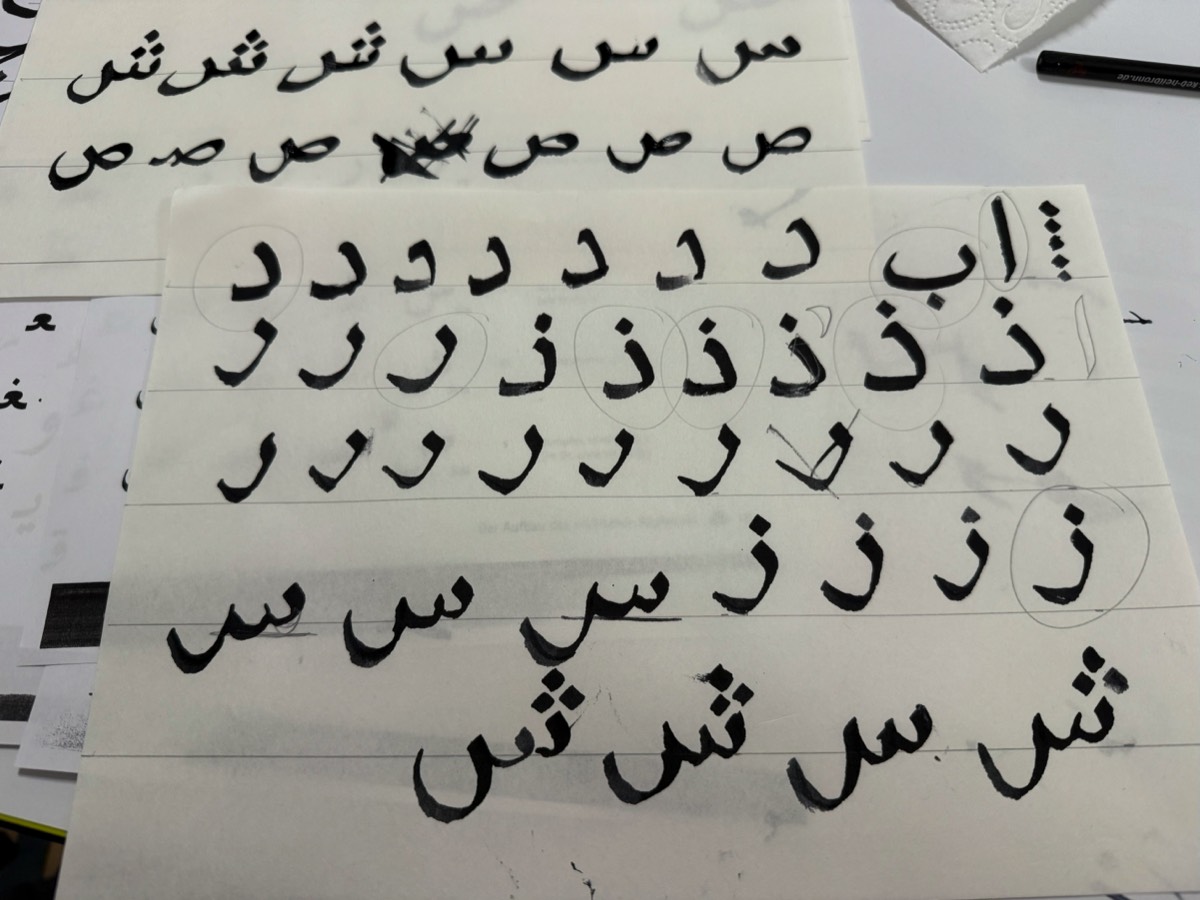 س س س ش ش ش
ص ص ص ص ص ص
ا ب د د د د د د د
ذ ذ ذ ذ ذ ذ ر ر ر
ر ر ر ر ر ر ر ر ر
ز ز ز ز س س س
ش س ش ش
keb-heilbronn.de